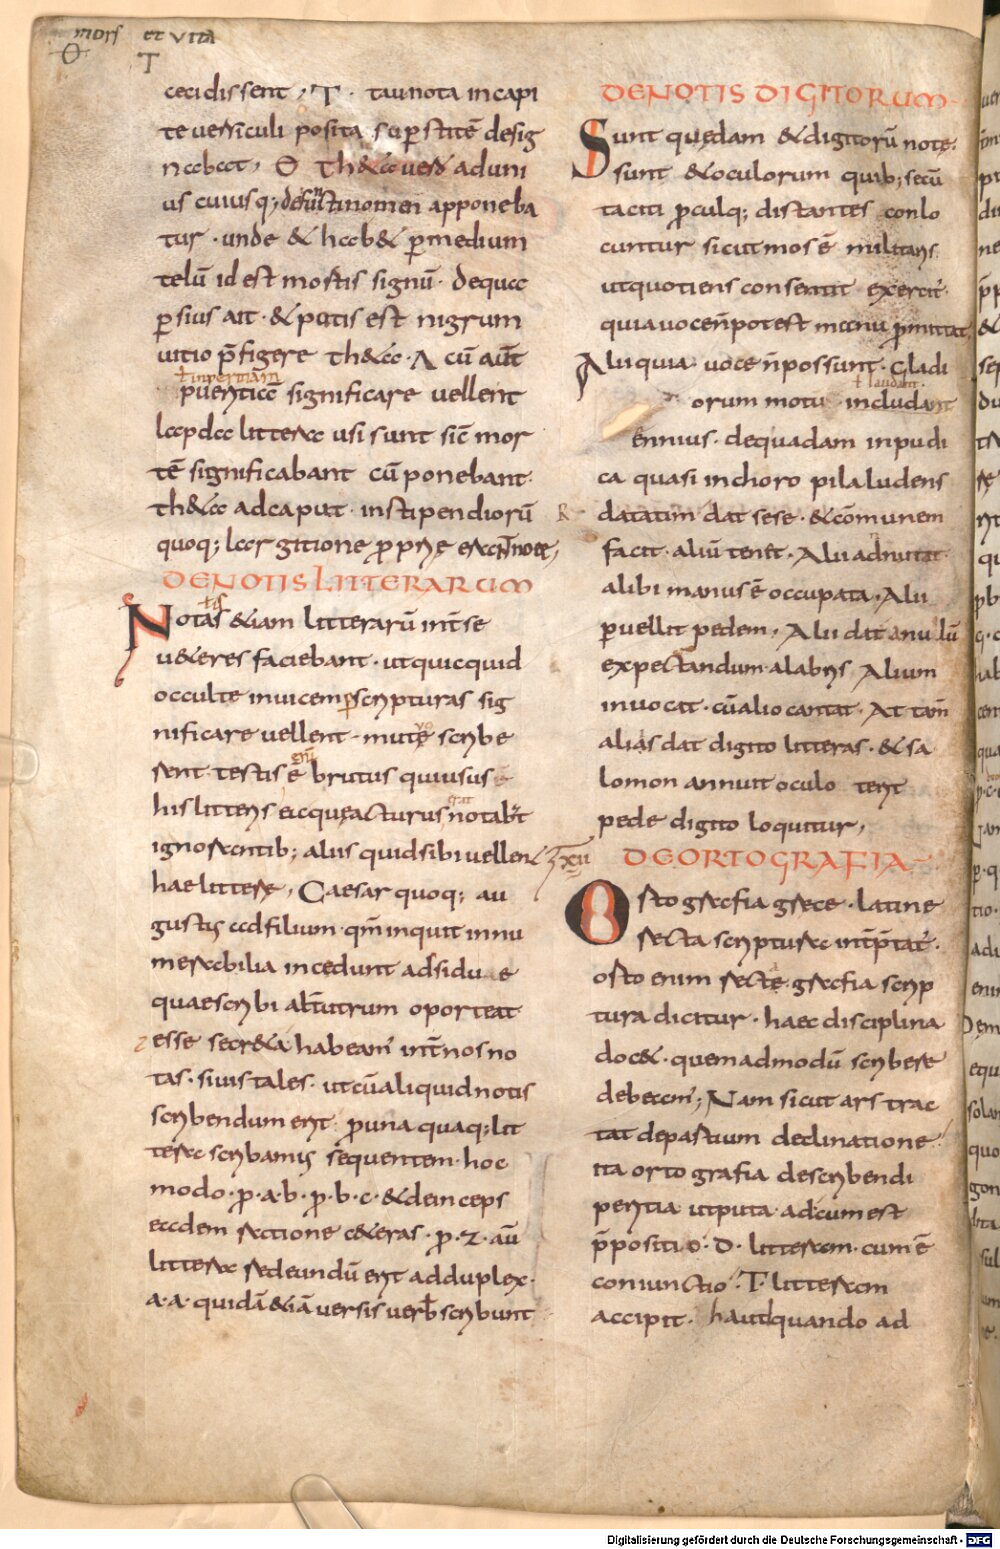 mors et vita
Θ T
cecidissent, T · tau nota in capi
te uersiculi posita superstitē desig
nabat, Θ Th&a uero ad uni
us cuiusq; defuncti nomen apponeba
tur · unde & hab& p medium
telū id est mortis signū · de qua
persius ait · & potis est nigrum
uitio p̄figere th&a · Λ cū aut̄
ł inperitiam
pueritiae significare uellent
lapda littera usi sunt sic̄ mor
tē significabant cū ponebant
th&a ad caput · in stipendiorū
quoq; largitione
DE NOTIS LITTERARUM
Notas &iam litterarū int̄ se
u&eres faciebant · ut quicquid
occulte inuicem p scripturas sig
nificare uellent · mutę scribe
rent · testis ē brutus qui usus
his litteris ea quę acturus notabat
ignorantib; aliis quid sibi uellent
hae litterę, Caesar quoq; au
gustus ad filium · qm̄ inquit innu
merabilia incedunt adsiduae
quae scribi alt̄utrum oporteat
esse secr&a habeam' int̄ nos no
tas · si uis tales · ut cū aliquid notis
scribendum erit pro una quaq; lit
tera scribamus sequentem · hoc
modo · p̄ · a · b · p̄ · b · c · & deinceps
eadem ratione c&eras · p̄ · z · aū
littera redeundū erit ad duplex ·
a · a · quidā &iā uersis uerb̄ scribunt
DE NOTIS DIGITORUM
Sunt quędam & digitorū notę
sunt & oculorum quib; secū
taciti proculq; distantes conlo
cuntur sicut mos ē militaris
ut quotiens consentit exercit'
quia uoce n̄ potest manu promittat
Alii quia uoce n̄ possunt · gladi
ł laudant
orum motu includant
Ennius · de quadam inpudi
ca quasi in choro pila ludens
datatim dat sese · & cōmunem
facit · aliū ten& · Alii adnutat
alibi manus ē occupata · Alii
peruellit pedem, Alii dat anulū
expectandum · a labris Alium
inuocat · cū alio cantat · At tam̄
aliis dat digito litteras · & sa
lomon annuit oculo terit
pede digito loquitur,
XXVII DE ORTOGRAFIA
Ortografia grece · latine
recta scriptura int̄p̄tat'
orto enim recte grafia scrip
tura dicitur · haec disciplina
doc& · quemadmodū scribere
debeam'; Nam sicut ars trac
tat de partium declinatione
ita ortografia de scribendi
peritia utputa · ad cum est
p̄positio · D · litteram · cum ē
coniunctio · T · litteram
accipit · haut quando ad
Digitalisierung gefördert durch die Deutsche Forschungsgemeinschaft - DFG